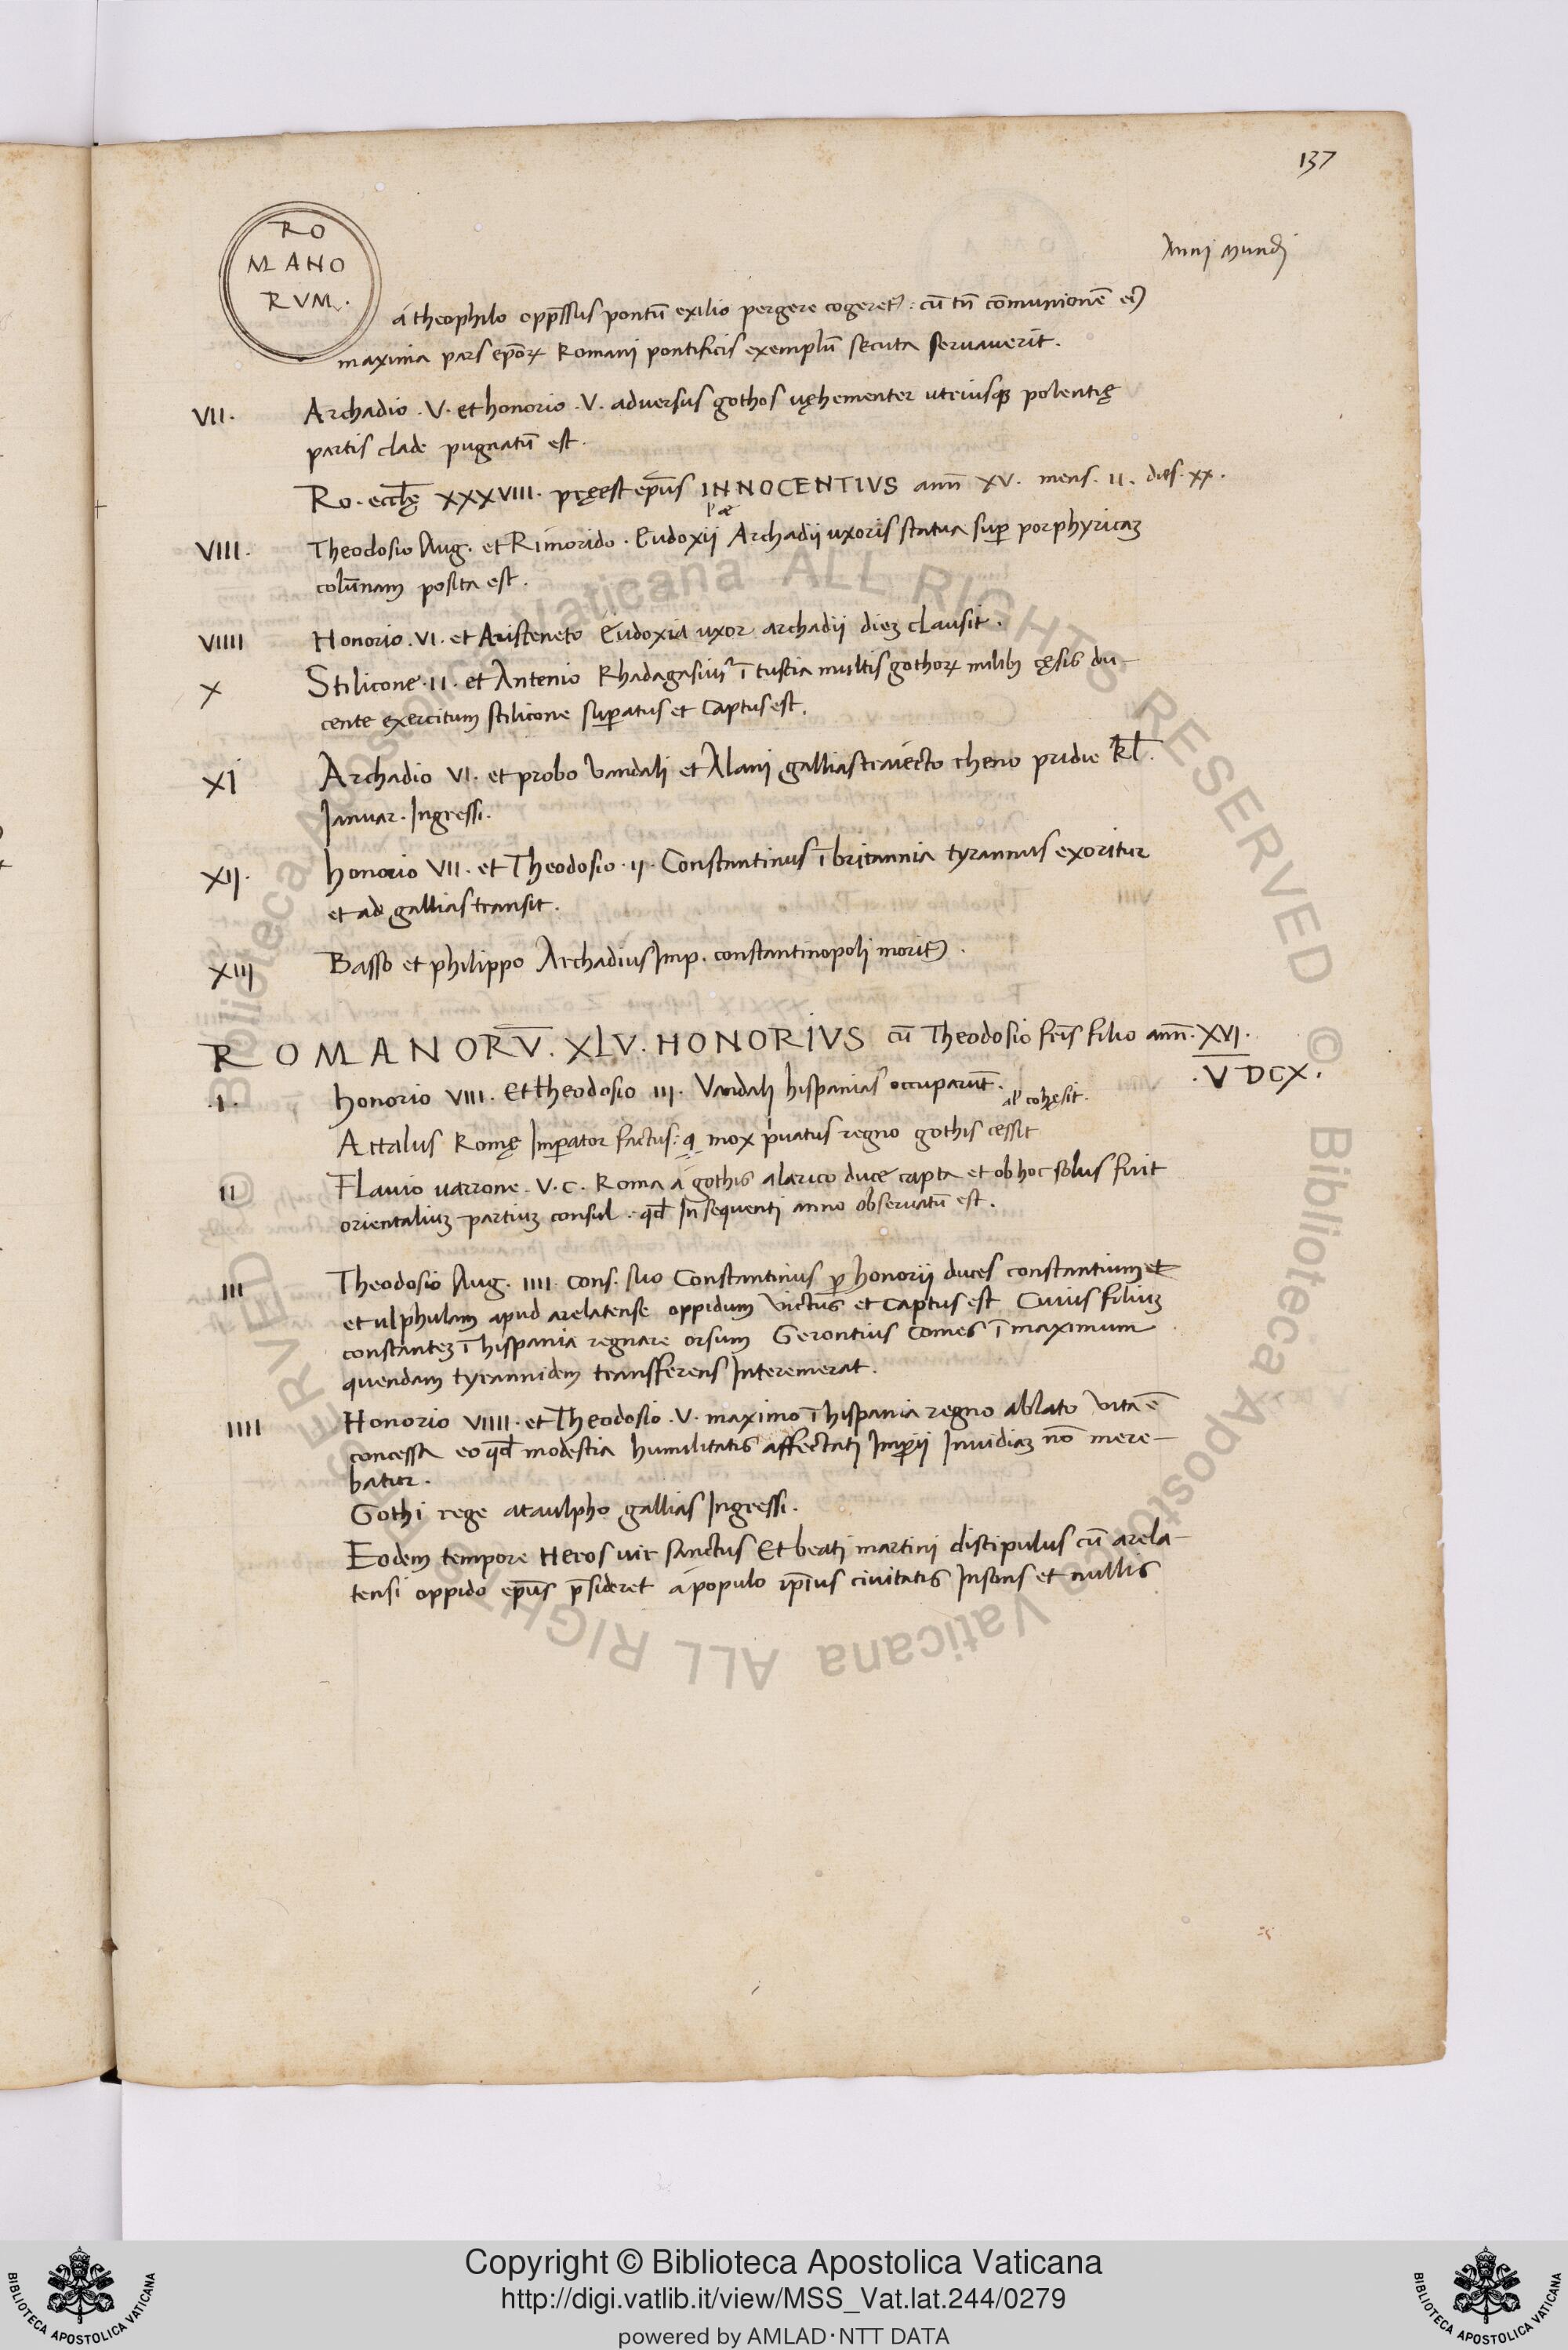 137
RO
MANO
RVM.
Anni Mundi
á theophilo opp̄ssus pontū exilio pergere cogeret᷒: cū tn̄ cōmunionē ei᷒
maxima pars epōꝝ Romani pontificis exemplū secuta servaverīt.
VII. Archadio .V. et honorio .V. adversus gothos vęhementer utriusqꝫ potentię
partis clade pugnatū est.
Ro. ecclę̄ XXXVIII. pręest ep̄us INNOCENTIVS ann̄ XV. mens. II. dies. XX.
VIII. Theodosio Aug. et Rimorido. Eudoxii Archadii uxoris statua suꝑ porphyricaꝫ
colūnam posita est.
VIIII Honorio .VI. et Aristeneto Eudoxia uxor archadii dieꝫ clausit.
X Stilicone .II. et Antenio Rhadagasius ī tuscia multis gothoꝝ milibꝫ cęsis du-
cente exercitum stilicone suꝑatus et captus est.
XI Archadio VI. et probo Vandali et Alani gallias traiecto rheno pridie kl̄.
Ianuar. Ingressi.
XII. honorio VII. et Theodosio .II. Constantinus ī britannia tyrannus exoritur
et ad gallias transit.
XIII Basso et philippo Archadius Imp. constantinopoli morit᷒.
ROMANORV̄. XLV. HONORIVS cū Theodosio fr̄is filio ann̄. XVI.
.V̄ DCX.
.I. honorio VIII. Et theodosio III. Vandali hispanias occuparūt.
al' cohęsit.
Attalus Romę Imꝑator factus: q mox pⁱvatus regno gothis cessit
II Flavio varrone .V.C. Roma á gothis alarico duce capta et ob hoc solus fuit
orientaliuꝫ partiuꝫ consul: qd̄ In sequenti anno observatū est.
III Theodosio Aug. IIII. Cons. suo Constantinus ꝑ honorii duces constantium et
et ulphulam apud arelatense oppidum victus et captus est Cuius filiuꝫ
constanteꝫ ī hispania regnare orsum Gerontius Comes ī maximum
quendam tyrannidem transfferens Interemerat.
IIII Honorio VIIII. et Theodosio .V. maximo ī hispania regno ablato vita ē
concessa eo qd̄ modestia humilitatis affectati Imꝑii Invidiaꝫ nō mere-
batur.
Gothi rege ataulpho gallias Ingressi.
Eodem tempore Heros vir sanctus Et beati martini discipulus cū arela-
tensi oppido ep̄us p̄sideret á populo ip̄ius civitatis Insons et nullis
Copyright © Biblioteca Apostolica Vaticana
http://digi.vatlib.it/view/MSS_Vat.lat.244/0279
powered by AMLAD·NTT DATA
BIBLIOTECA APOSTOLICA VATICANA
BIBLIOTECA APOSTOLICA VATICANA
Biblioteca Apostolica Vaticana ALL RIGHTS RESERVED © Biblioteca Apostolica Vaticana ALL RIGHTS RESERVED ©